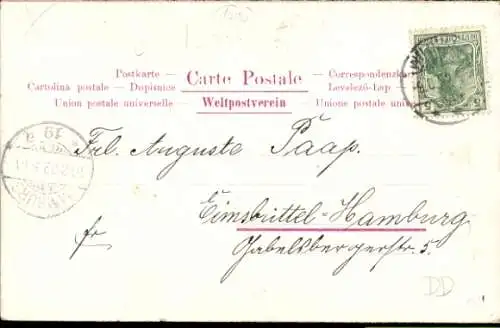 Postkarte — Carte Postale — Correspondenzkarte
Cartolina postale — Dopisnice Levelező-Lap
Union postale universelle — Weltpostverein — Unione postale
Frl. Auguste Paap.
fr
Eimsbüttel-Hamburg
Gabelsbergerstr. 5.
19 a
DD